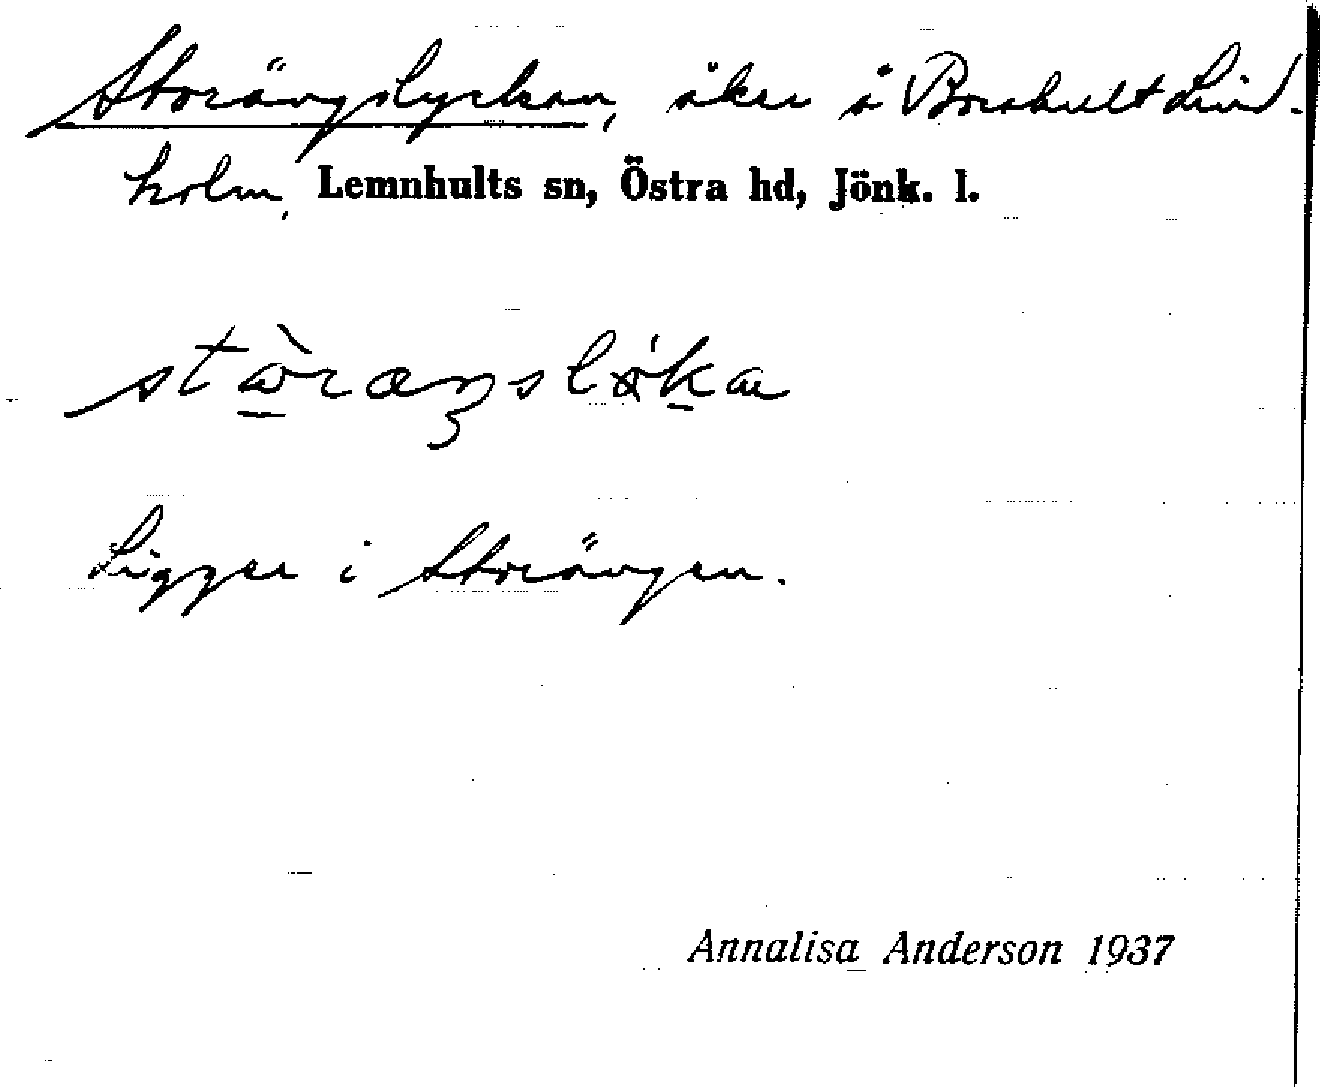 Storängslyckan, åker å Broahult Lind-
holm, Lemnhults sn, Östra hd, Jönk. l.
Ligger i Storängen.
Annalisa Anderson 1937